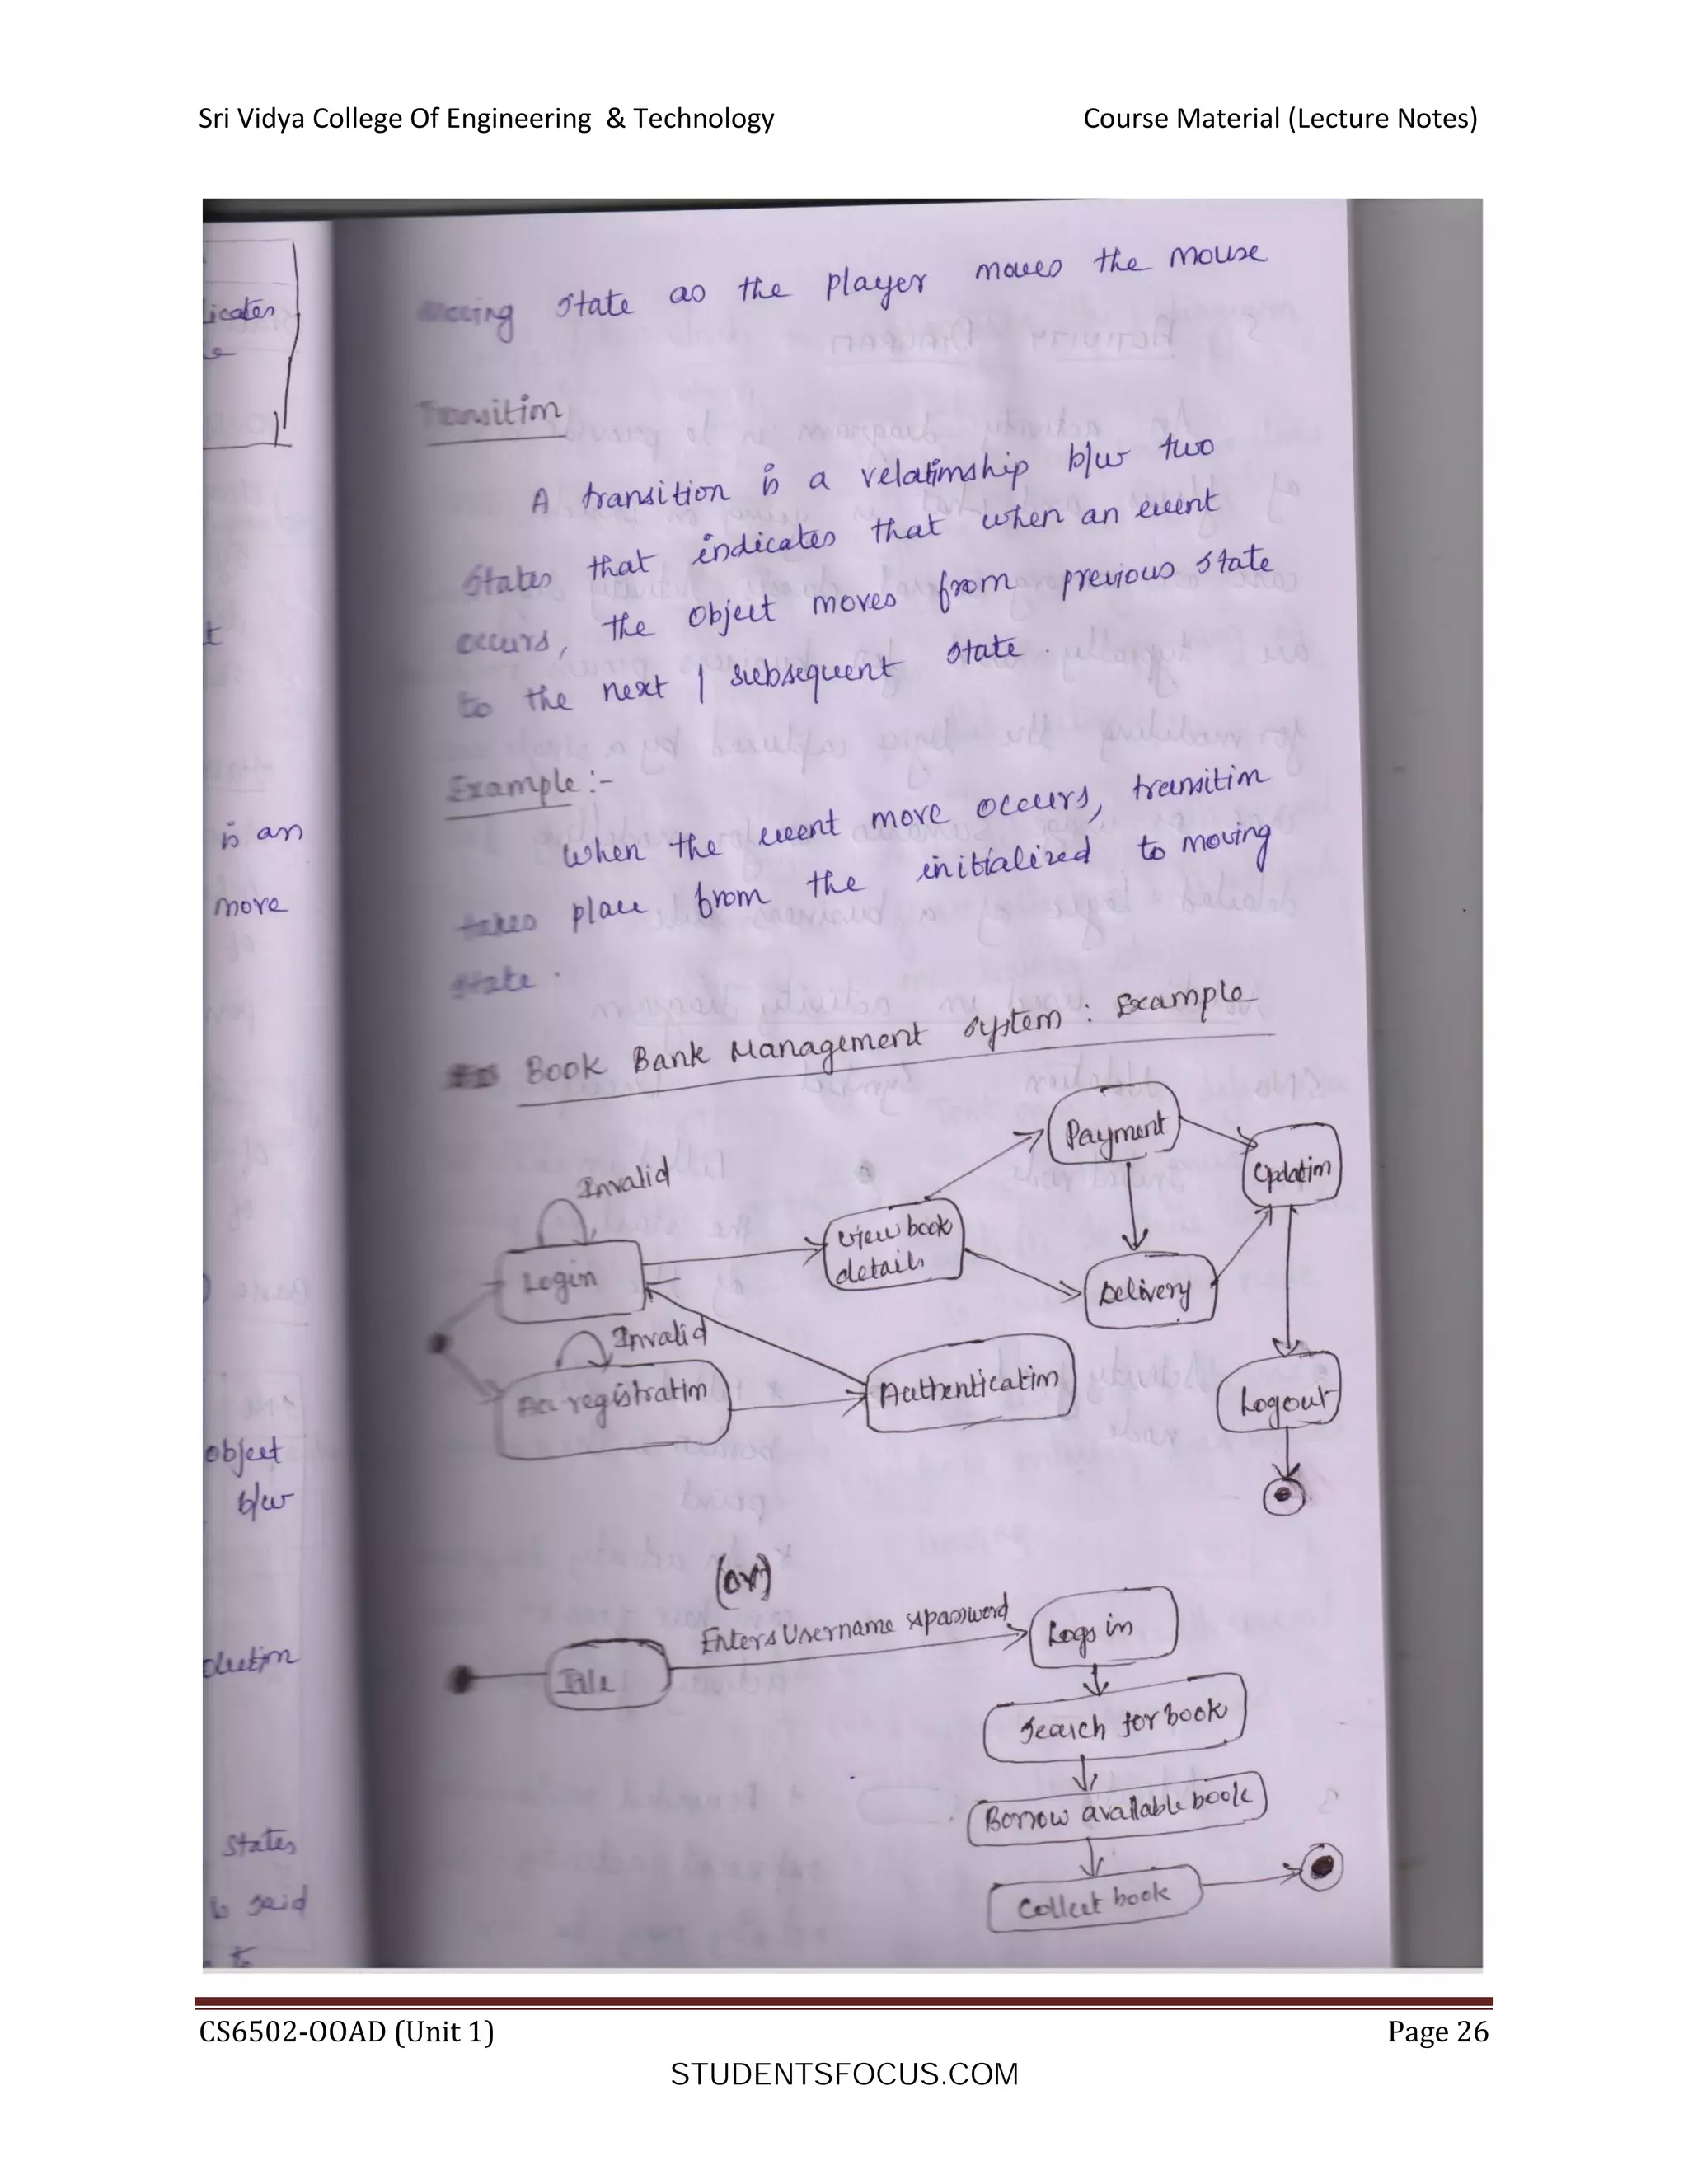 Sri Vidya College Of Engineering & Technology Course Material (Lecture Notes)
state as the player moves the mouse
Transition
A transition is a relationship b/w two
states that indicates that when an event
occurs, the object moves from previous state
to the next / subsequent state.
Example :-
When the event move occurs, transition
takes place from the initialized to moving
state.
Book Bank Management system : Example
Payment
Updation
Invalid
View book
details
Login
Delivery
Invalid
registration
Authentication
Logout
(or)
Enters Username & password
Logs in
Idle
Search for book
Borrow available book
Collect book
licates
is an
more
object
b/w
states
said
to
CS6502-OOAD (Unit 1) Page 26
STUDENTSFOCUS.COM